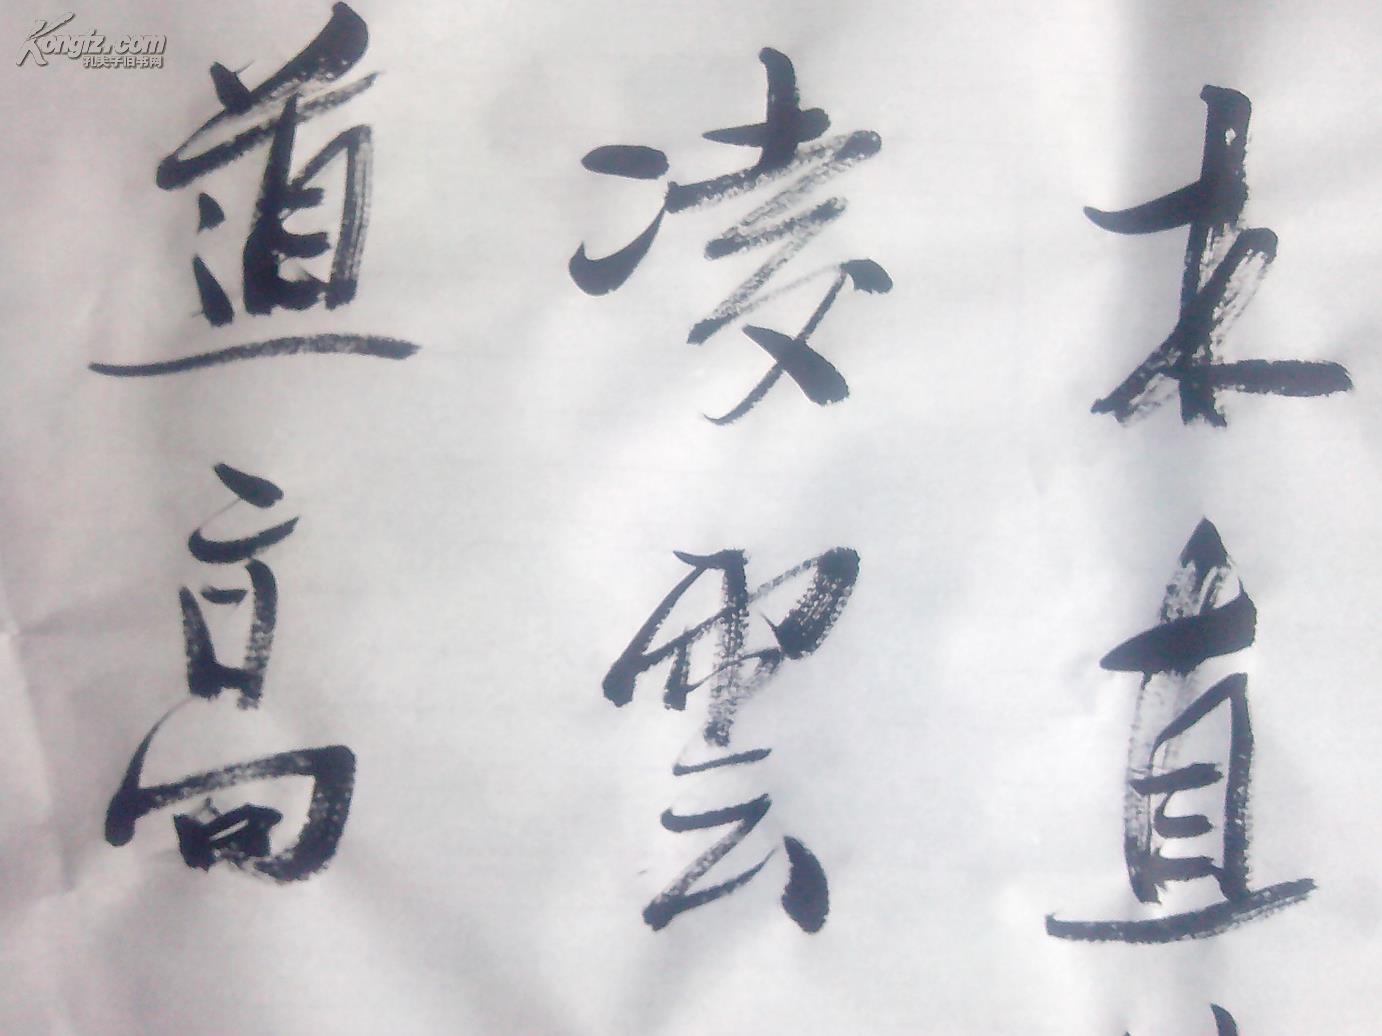 木直
凌雲
道高
Kongfz.com
孔夫子旧书网